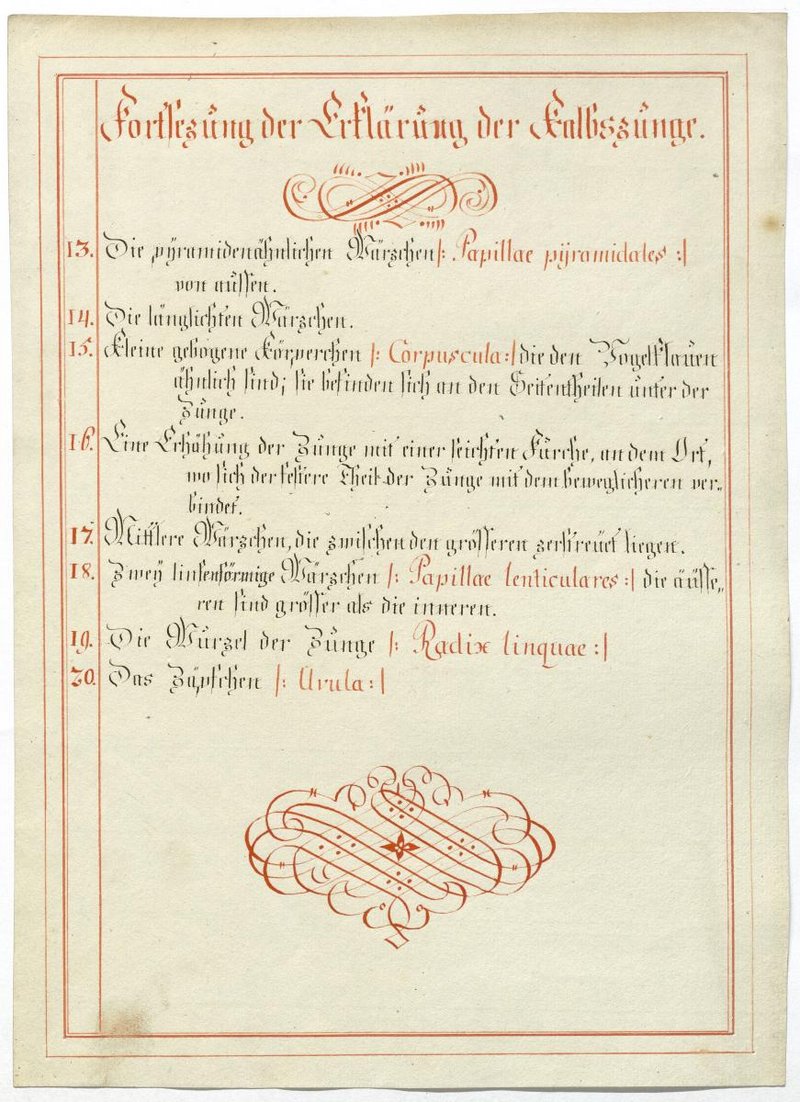 Fortsezung der Erklärung der Kalbszunge.
13. Die pÿramidenähnlichen Wärzchen |: Papillae pÿramidales :|
von aussen.
14. Die länglichten Wärzchen.
15. Kleine gebogene Körperchen |: Corpuscula :| die den Vogelklauen
ähnlich sind; sie befinden sich an den Seitentheilen unter der
Zunge.
16. Eine Erhöhung der Zunge mit einer leichten Furche, an dem Ort,
wo sich der festere Theil der Zunge mit dem beweglicheren ver-
bindet.
17. Mittlere Wärzchen, die zwischen den grösseren zerstreut liegen.
18. Zweÿ linsenförmige Wärzchen |: Papillae lenticulares :| die äusse-
ren sind grösser als die inneren.
19. Die Wurzel der Zunge |: Radix linquae :|
20. Das Zäpfchen |: Uvula :|